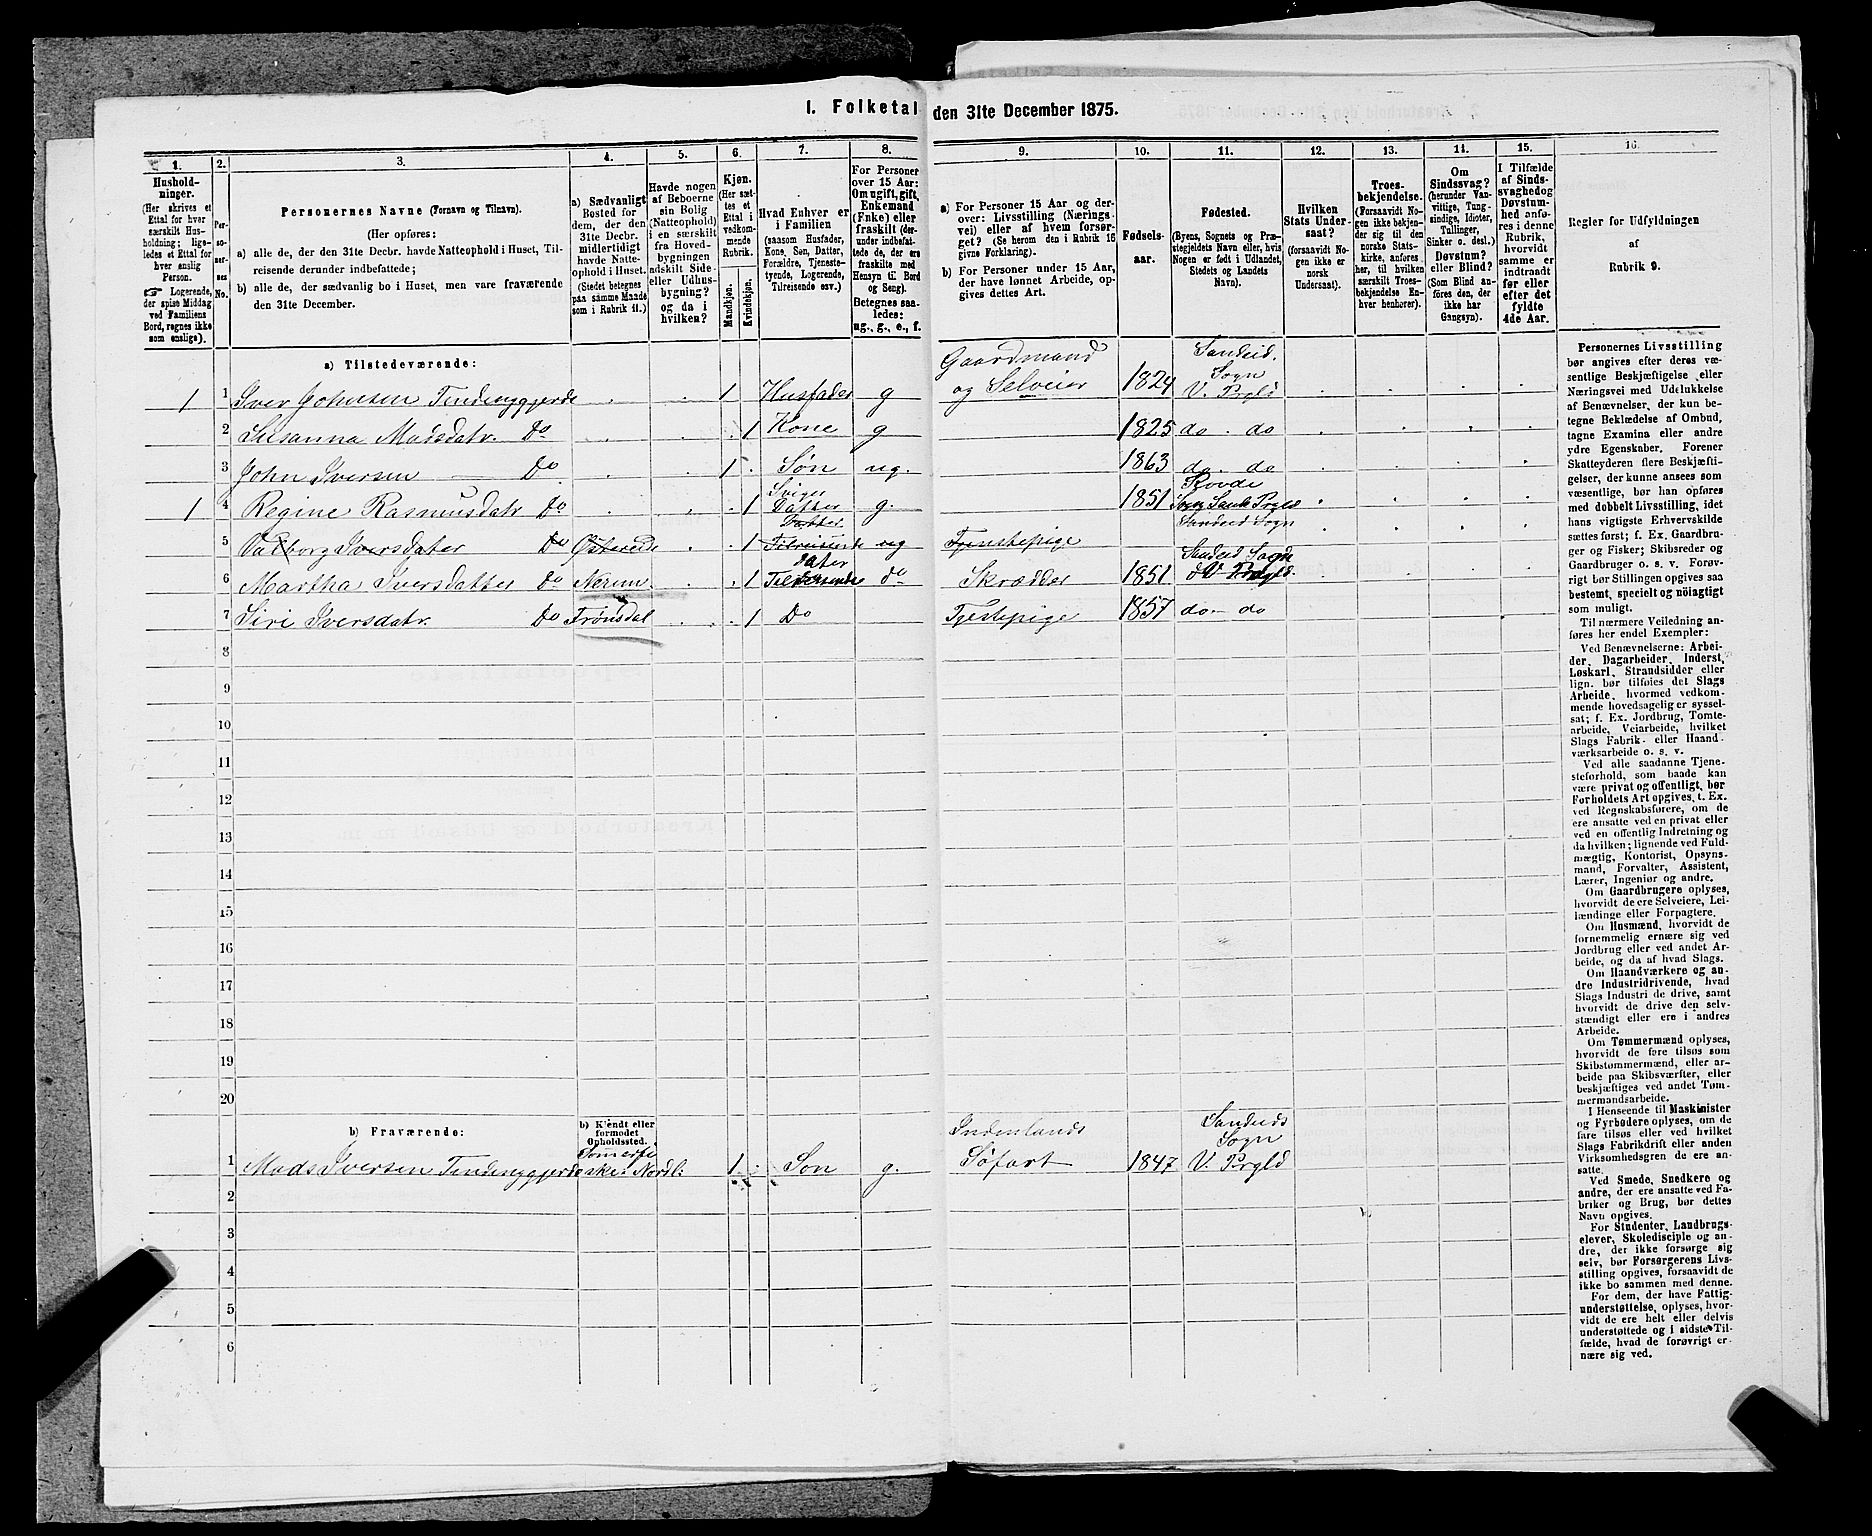 I. Folketal den 31te December 1875.
1.
Hushold-
ninger.
(Her skrives et
Ettal for hver
særskilt Hus-
holdning; lige-
ledes et Ettal for
hver enslig
Person.
☞ Logerende,
der spise Middag
ved Familiens
Bord, regnes ikke
som enslige).
2.
Per-
so-
ner-
nes
No.
3.
Personernes Navne (Fornavn og Tilnavn).
(Her opføres:
a) alle de, der den 31te Decbr. havde Natteophold i Huset, Til-
reisende derunder indbefattede;
b) alle de, der sædvanlig bo i Huset, men vare fraværende
den 31te December.
4.
a) Sædvanligt
Bosted for
dem, der den
31te Decbr.
midlertidigt
havde Natte-
ophold i Huset.
(Stedet betegnes
paa samme Maade
som i Rubrik 11.)
5.
Havde nogen
af Beboerne
sin Bolig
(Natteophold)
i en særskilt
fra Hoved-
bygningen
adskilt Side-
eller Udhus-
bygning?
og da i
hvilken?
6.
Kjøn.
(Her sæt-
tes et
Ettal i
vedkom-
mende
Rubrik.
Mandkjøn.
Kvindekjøn.
7.
Hvad Enhver er
i Familien
(saasom Husfader,
Kone, Søn, Datter,
Forældre, Tjeneste-
tyende, Logerende,
Tilreisende osv.)
8.
For Personer
over 15 Aar:
Om ugift, gift,
Enkemand
(Enke) eller
fraskilt (der-
under indbefat-
tede de, der ere
fraskilte med
Hensyn til Bord
og Seng).
Betegnes saa-
ledes:
ug., g., e., f.
9.
a) For Personer 15 Aar og der-
over: Livsstilling (Nærings-
vei) eller af hvem forsør-
get? (Se herom den i Rubrik 16
givne Forklaring).
b) For Personer under 15 Aar,
der have lønnet Arbeide, op-
gives dettes Art.
10.
Fødsels-
aar.
11.
Fødested.
(Byens, Sognets og Præ-
stegjeldets Navn eller, hvis
Nogen er født i Udlandet,
Stedets og Landets
Navn).
12.
Hvilken
Stats Under-
saat?
(forsaavidt No-
gen ikke er
norsk
Undersaat).
13.
Troes-
bekjendelse.
(Forsaavidt No-
gen ikke bekjen-
der sig til den
norske Stats-
kirke, anføres
her, til hvilken
særskilt Troes-
bekjendelse En-
hver henhører).
14.
Om
Sindssvag?
(herunder Van-
vittige, Tung-
sindige, Idioter,
Tullinger,
Sinker o. desl.)
Døvstum?
eller Blind?
(Som Blind an-
føres den, der
ikke har
Gangsyn).
15.
I Tilfælde
af Sinds-
svaghed og
Døvstum-
hed anfø-
res i denne
Rubrik,
hvorvidt
samme er
indtraadt
før eller
efter det
fyldte
4de Aar.
16.
Regler for Udfyldningen
af
Rubrik 9.
a) Tilstedeværende:
1 1 Iver Johnsen Tindenyggjerde 1 Husfader g Gaardmand og Selveier 1824 Sandeid. Sogn V. Prgld
2 Susanna Madsdatr. Do 1 Kone g 1825 do. do
3 John Iversen Do 1 Søn ug. 1863 do. do
1 4 Regine Rasmusdatr Do 1 Sviger Datter g. 1851 Skovde Sogn Prgld
5 Valborg Iversdater Do 1 Datter Tilreisende ug Tjenstepige Sandeid Sogn
6 Martha Iversdatter Do Nerum. 1 Dater Tilreisende do Skrædder 1851 Sandeid Sogn V. Prgld.
7 Siri Iversdatr. Do Trønsdal 1 Do Tjestepige 1857 do. do
8
9
10
11
12
13
14
15
16
17
18
19
20
b) Fraværende:
b) Kjendt eller
formodet
Opholdssted.
1 Mads Iversen Tindenyggjerde 1 Søn g. Indenlands Søfart 1847 Sandeids Sogn V. Prgld
2
3
4
5
6
Personernes Livsstilling
bør angives efter deres væ-
sentlige Beskjæftigelse eller
Næringsvei med Udelukkelse
af Benævnelser, der kun be-
tegne Beklædelse af Ombud,
tagne Examina eller andre
ydre Egenskaber. Forener
Skatteyderen flere Beskjæfti-
gelser, der kunne ansees som
væsentlige, bør han opføres
med dobbelt Livsstilling, idet
hans vigtigste Erhvervskilde
sættes først; f. Ex. Gaardbru-
ger og Fisker; Skibsreder og
Gaardbruger o. s. v. Forøv-
rigt bør Stillingen opgives saa
bestemt, specielt og nöiagtigt
som muligt.
Til nærmere Veiledning an-
føres her endel Exempler:
Ved Benævnelserne: Arbei-
der, Dagarbeider, Inderst,
Løskarl, Strandsidder eller
lign. bør tilføies det Slags
Arbeide, hvormed vedkom-
mende hovedsagelig er syssel-
sat; f. Ex. Jordbrug, Tomte-
arbeide, Veiarbeide, hvilket
Slags Fabrik- eller Haand-
værksarbeide o. s. v.
Ved alle saadanne Tjene-
steforhold, som baade kan
være privat og offentligt, bør
Forholdets Art opgives, t. Ex.
ved Regnskabsførere, om de
ere ansatte ved en privat eller
ved en offentlig Indretning og
da hvilken; lignende ved Fuld-
mægtig, Kontorist, Opsyns-
mand, Forvalter, Assistent,
Lærer, Ingeniør og andre.
Om Gaardbrugere oplyses,
hvorvidt de ere Selveiere, Lei-
lændinge eller Forpagtere.
Om Husmænd, hvorvidt de
fornemmelig ernære sig ved
Jordbrug eller ved andet Ar-
beide, og da af hvad Slags.
Om Haandværkere og an-
dre Industridrivende, hvad
Slags Industri de drive, samt
hvorvidt de drive den selv-
stændigt eller ere i andres
Arbeide.
Om Tømmermænd oplyses,
hvorvidt de fare tilsøs som
Skibstømmermænd, eller ar-
beide paa Skibsværfter, eller
beskjæftiges ved andet Tøm-
mermandsarbeide.
I Henseende til Maskinister
og Fyrbødere oplyses, om de
fare tilsøs eller ved hvilket
Slags Fabrikdrift eller anden
Virksomhedsgren de ere an-
satte.
Ved Smede, Snedkere og
andre, der ere ansatte ved Fa-
briker og Brug, bør dettes
Navn opgives.
For Studenter, Landbrugs-
elever, Skoledisciple og an-
dre, der ikke forsørge sig
selv, bør Forsørgerens Livs-
stilling opgives, forsaavidt de
ikke bo sammen med denne.
For dem, der have Fattig-
understøttelse, oplyses, hvor-
vidt de ere helt eller delvis
understøttede og i sidste Til-
fælde, hvad de forøvrigt er-
nære sig ved.